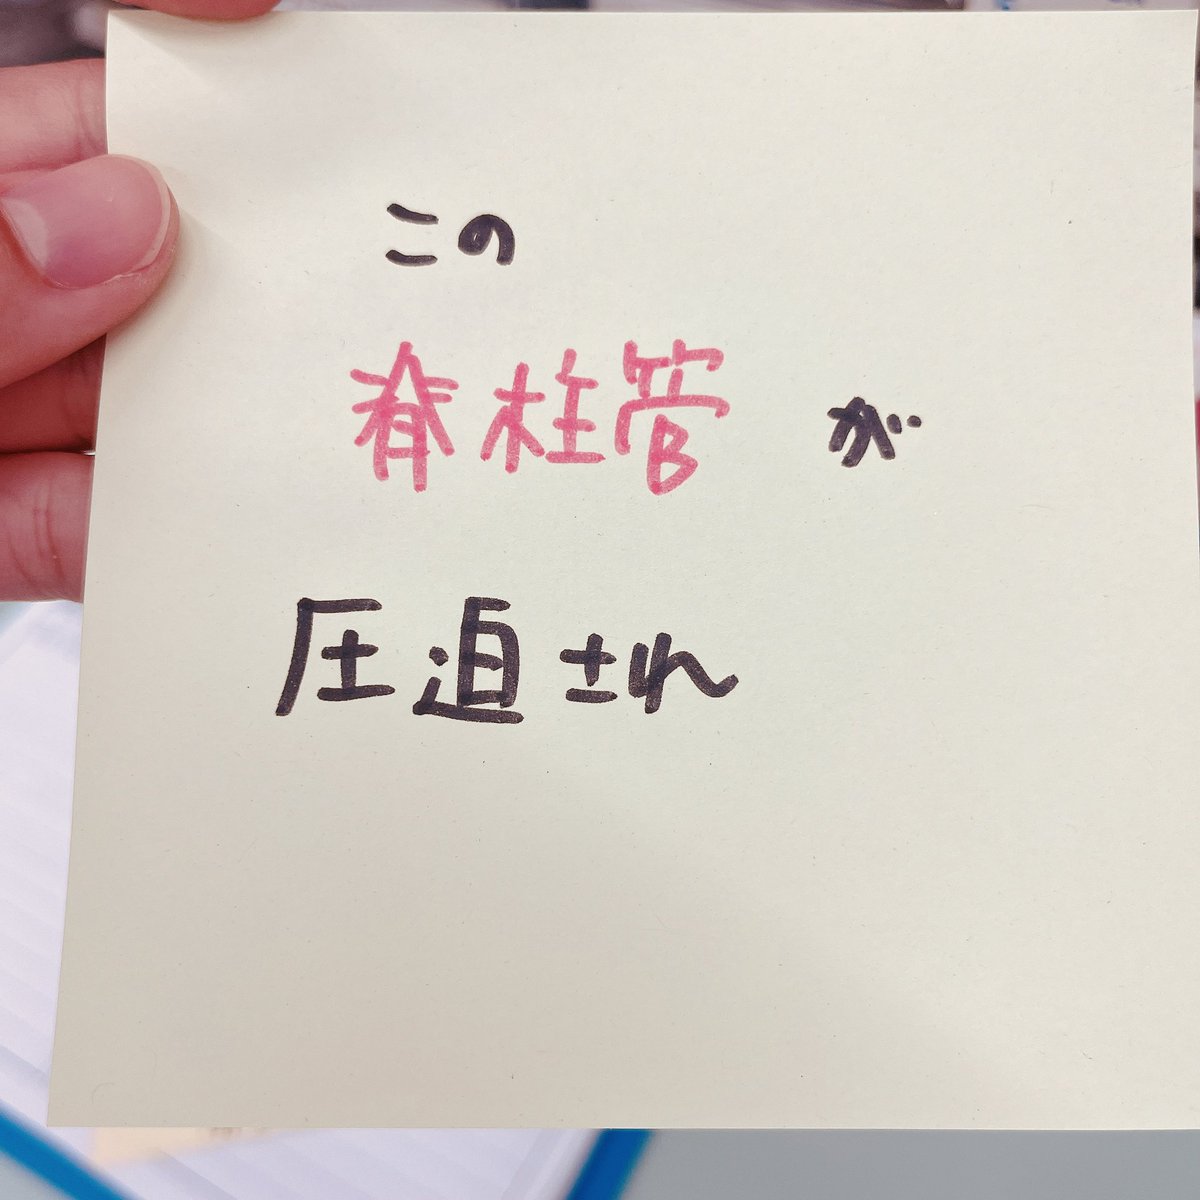 この
脊柱管が
圧迫され